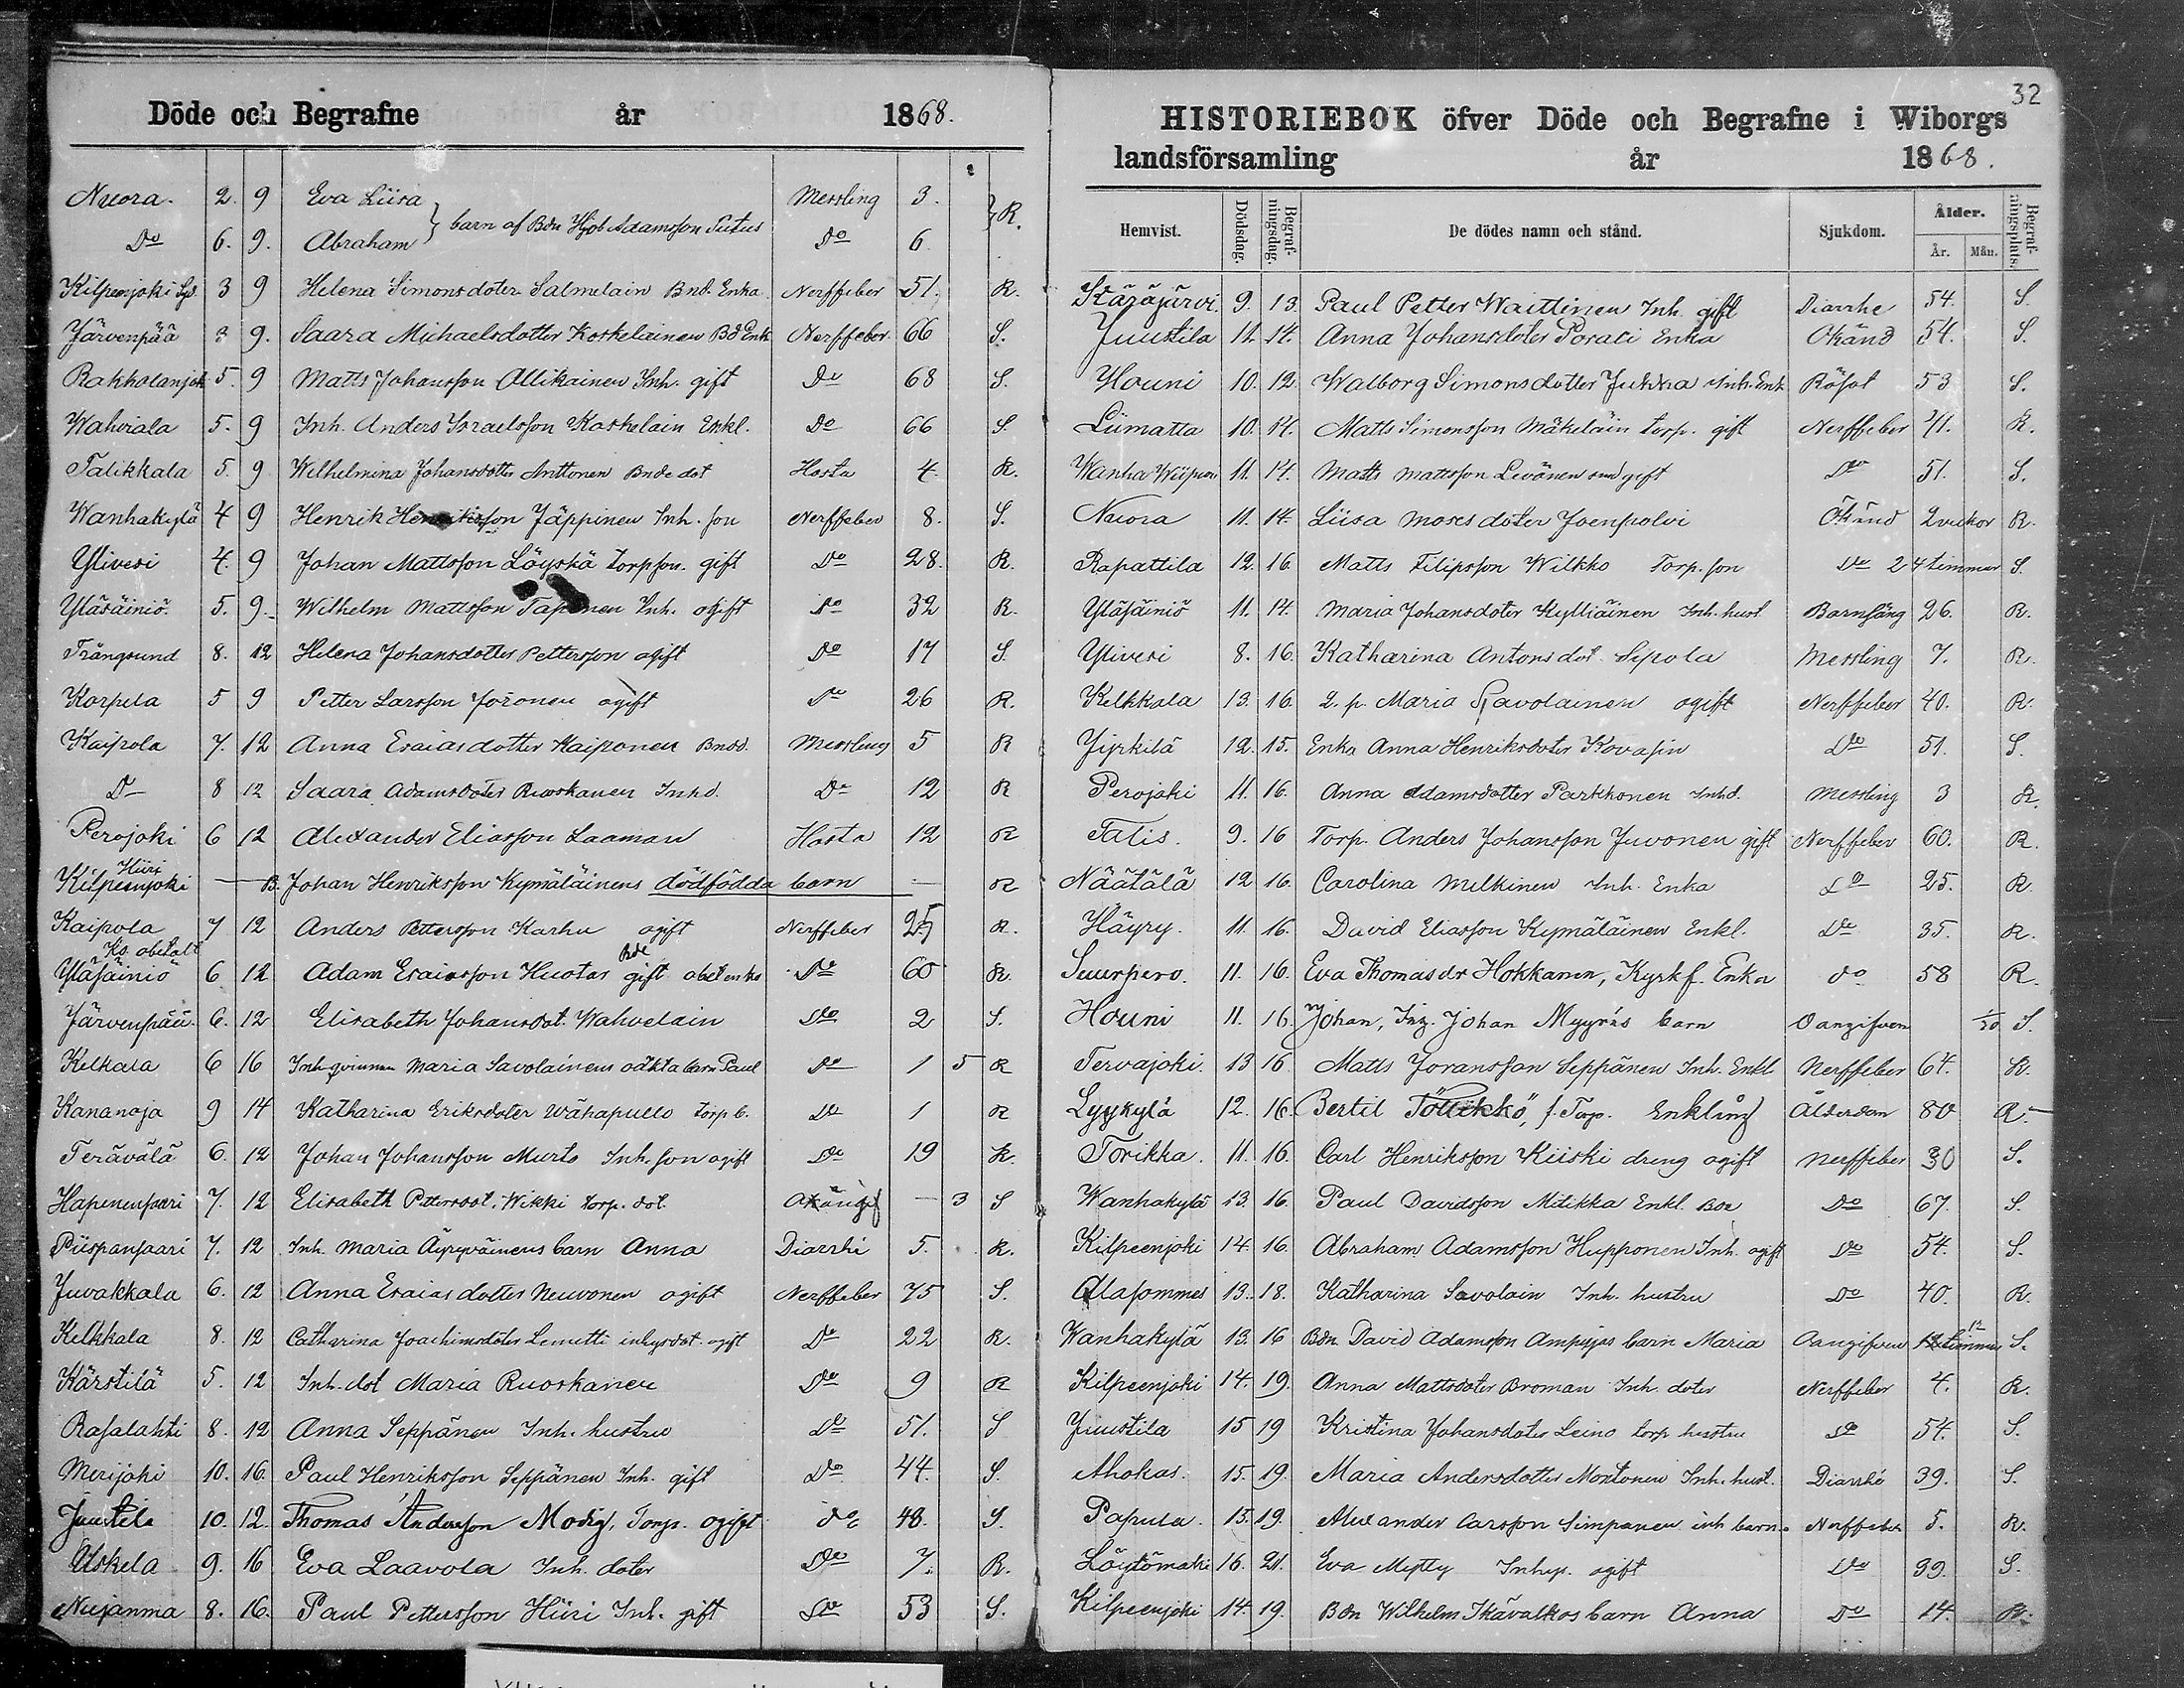 Döde och Begrafne år 1868.
Nuora. 2. 9 Eva Liisa Messling 3.
barn af Bdn Hjob Adamsson Tutus R.
Do 6. 9. Abraham Do 6
Kilpeenjoki 3 9 Helena Simonsdoter Salmelain Bnd. Enka Nerffeber 51. R.
Järvenpää 3 9. Saara Michaelsdotter Koskelainen Bd Enk Nerffeber 66 S.
Rakkolanjok 5. 9 Matts Johansson Ollikainen Inh. gift Do 68 S.
Wahviala 5. 9 Inh. Anders Israelsson Koskelain Enkl. Do 66 S.
Talikkala 5. 9 Wilhelmina Johansdotter Anttonen Bnde dot Hosta 4 R.
Wanhakylä 4 9 Henrik Henriksson Jäppinen Inh. son Nerffeber 8. S.
Ylivesi 4. 9 Johan Mattsson Löyskä torpson. gift Do 28. R.
Yläsäiniö 5. 9. Wilhelm Mattsson Taponen Inh. ogift Do 32 R.
Trångsund 8. 12 Helena Johansdotter Pettersson ogift Do 17 S.
Korpela 5 9 Petter Larsson Joronen ogift Do 26 R.
Kaipola 7. 12 Anna Esaiasdotter Kaiponen Bnd. Messling 5 R
Do 8 12 Saara Adamsdoter Ruoskanen Inhd. Do 12 R
Perojoki 6 12 Alexander Eliasson Laaman Hosta 12 R
Hiiri
Kilpeenjoki — B. Johan Henriksson Kymäläinens dödfödda barn — R
Kaipola 7 12 Anders Pettersson Karhu ogift Nerffeber 25 R.
Ks. obetalt
Yläsäiniö 6 12 Adam Esaiasson Huotar Bde gift obet enka Do 60 R.
Järvenpää 6. 12 Elisabeth Johansdot. Wahvelain Do 2 S.
Kelkala 6 16 Inh. qvinnan Maria Savolainens oäkta barn Paul Do 1 5 R
Kananoja 9 14 Katharina Eriksdoter Wähapullo torp b. Do 1 R
Terävälä 6. 12 Johan Johansson Murto Inh. son ogift Do 19 R.
Hapenensaari 7. 12 Elisabeth Pettersdot. Wikki torp. dot. — 3 S
Piispansaari 7. 12 Inh. Maria Äyryväinens barn Anna Diarrhé 5. R.
Juvakkala 6. 12 Anna Esaiasdotter Neuvonen ogift Nerffeber 75 S.
Kelkkala 8. 12 Catharina Joachimsdoter Lemetti inhysdot. ogift Do 22 R.
Kärstilä 5. 12 Inh. dot Maria Ruoskanen Do 9 R
Rasalahti 8. 12 Anna Seppänen Inh. hustru Do 51. S
Merijoki 10. 16. Paul Henriksson Seppänen Inh. gift Do 44. S.
Juustila 10. 12. Thomas Andersson Modig, Torp. ogift do 48. S.
Uskela 9. 16 Eva Laavola Inh. doter Do 7. R.
Nuijanmaa 8. 16. Paul Pettersson Hiiri Inh. gift Do 53 S.
32
HISTORIEBOK öfver Döde och Begrafne i Wiborgs
landsförsamling år 1868.
Hemvist. Dödsdag. Begrafningsdag. De dödes namn och stånd. Sjukdom. Ålder. År. Mån. Begrafningsplats.
Stäräjärvi 9. 13 Paul Petter Waittinen Inh. gift Diarrhe 54. S.
Juustila 11. 14. Anna Johansdoter Porali Enka Okänd 54. S.
Houni 10. 12 Walborg Simonsdotter Jukka Inh. Enk Rösot 53 S.
Liimatta 10. 14. Matts Simonsson Mäkeläin torp. gift Nerffeber 41. R.
Wanha Wiipuri 11. 14. Matts Mattsson Levänen gift Do 51. S.
Nuora 11. 14. Liisa Mosesdoter Joenpolvi Okänd 2 vickor R.
Rapattila 12. 16 Matts Filipsson Wilkko Torp. son Do 24 timmar S.
Yläsäiniö 11. 14. Maria Johansdoter Kylliäinen Inh. hust. Barnsäng 26. R.
Ylivesi 8. 16. Katharina Antonsdot. Sipola Messling 7. R.
Kelkkala 13. 16. Q. p. Maria Savolainen ogift Nerffeber 40. R.
Jyrkilä 12. 15. Enka Anna Henriksdoter Kovasin Do 51. S.
Perojoki 11. 16. Anna Adamsdotter Parkkonen Inhd. Messling 3 R.
Talis. 9. 16 Torp. Anders Johansson Juvonen gift Nerffeber 60. R.
Näätälä 12 16. Carolina Melkinen Inh. Enka Do 25. R.
Häyry. 11. 16. David Eliasson Kymäläinen Enkl. Do 35. R.
Suurpero. 11. 16. Eva Thomasdr Hokkanen, Kyrkf. Enka do 58 R.
Houni 11. 16. Johan, Inh. Johan Myyräs barn Oangifven 1/20 S.
Tervajoki. 13 16 Matts Joransson Seppänen Inh. Enkl Nerffeber 64. R.
Lyykylä 12. 16. Bertil Töllikkö, f. Torp. Enkling Ålderdom 80 R.
Torikka. 11. 16. Carl Henriksson Kiiski dreng ogift Nerffeber 30 S.
Wanhakylä 13. 16 Paul Davidsson Mitikka Enkl. Bde Do 67. S.
Kilpeenjoki 14. 16. Abraham Adamsson Hupponen Inh. ogift Do 54. S.
Alasommes 13. 18. Katharina Savolain Inh. hustru Do 40. R.
Wanhakylä 13. 16 Bdn. David Adamsson Ampujas barn Maria Oangifven 12 timmar S.
Kilpeenjoki 14. 19. Anna Mattsdoter Broman Inh. doter Nerffeber 4. R.
Juustila 15 19 Kristina Johansdoter Leino torp hustru Do 54. S.
Ahokas. 15. 19. Maria Andersdotter Montonen Inh. hust. Diarrhé 39. S.
Papula. 15. 19. Alexander Carsson Simpanen inh barn. Nerffeber 5. R.
Löytömäki 16. 21. Eva Inhys. ogift Do 39. S.
Kilpeenjoki 14. 19. Bdn Wilhelm Ikävalkos barn Anna Do 14. R.